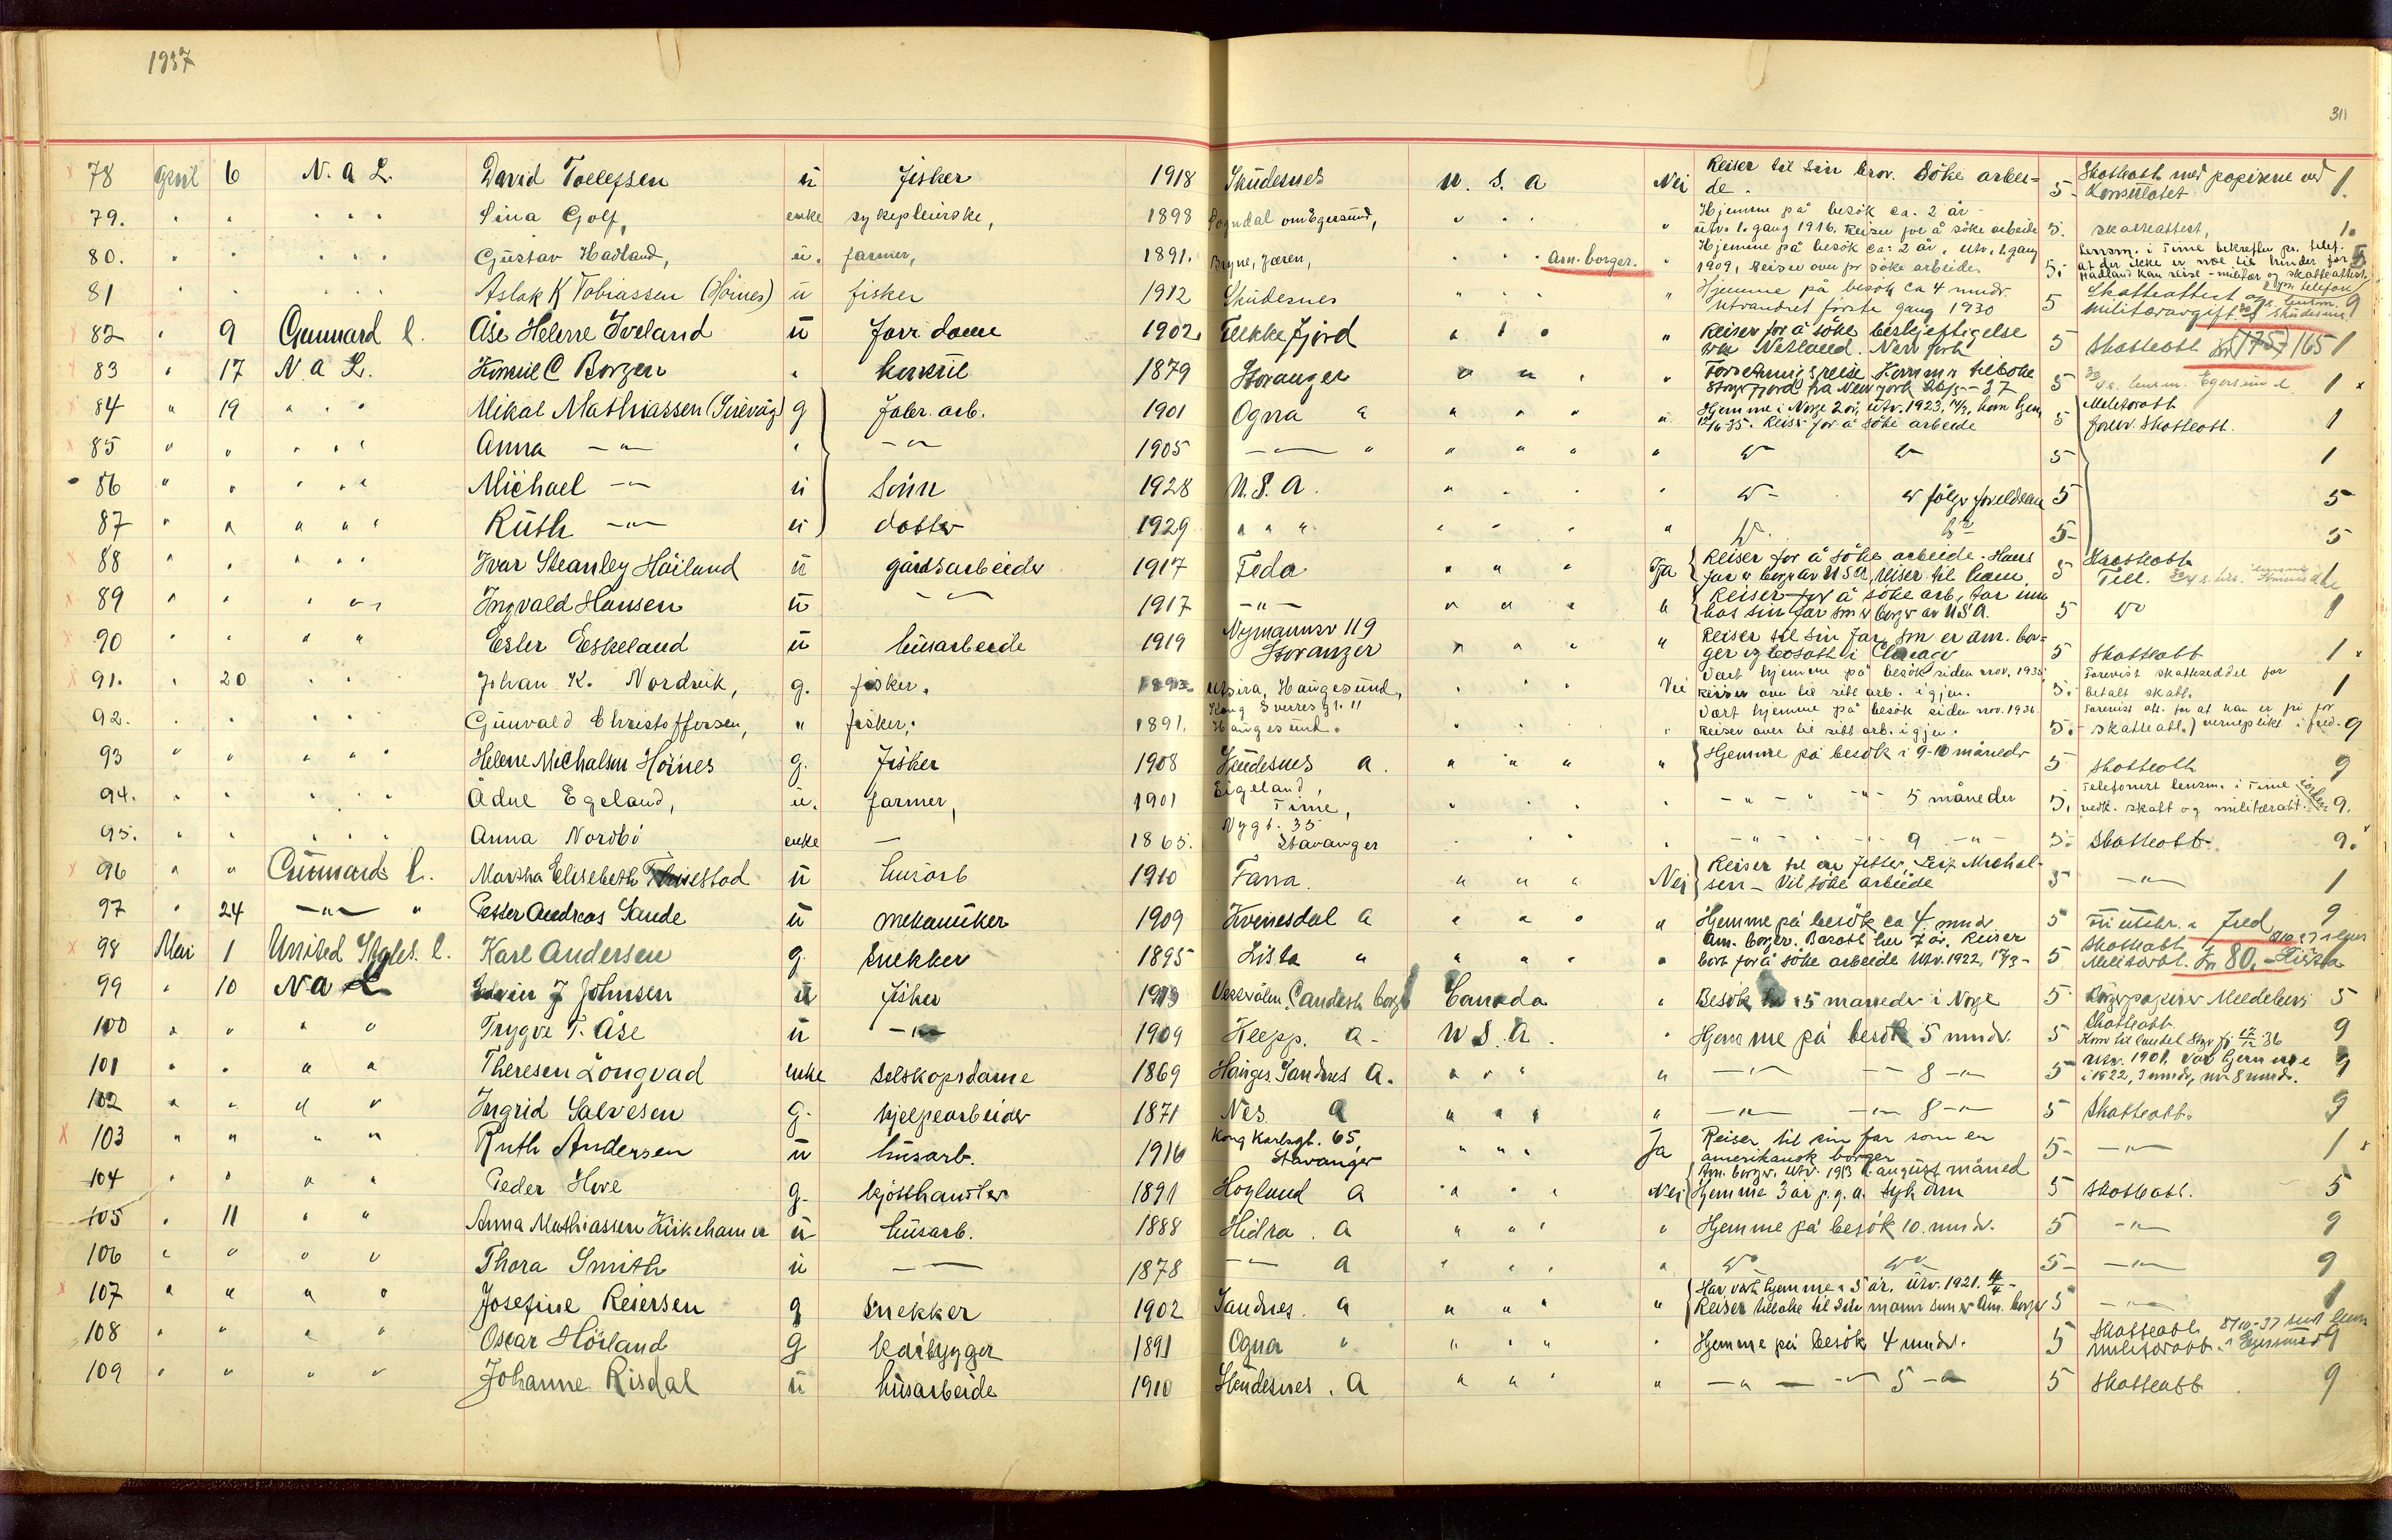 1937
311
78 April 6 N. A L. David Tollefsen ü fisker 1918 Skudesnes U. S. A Nei Reiser til sin bror. Söke arbei= de. 5- Skatteatt med papirene ved Konsulatet 1.
79. " " " " " Sina Golf, enke sykepleierske, 1898 Sogndal om Egersund, " " " " Hjemme på besök ca. 2 år - utv. 1. gang 1916. Reiser for å söke arbeide 5. skatteattest, 1.
80. " " " " " Gustav Hadland, ü. farmer, 1891. Bryne, Jæren, " " " Am. borger. " Hjemme på besök ca. 2 år, utv. 1. gang 1909, Reiser over for söke arbeide. 5. lensm. i Time bekrefter pr. telef. at der ikke er noe til hinder for Hadland kan reise - militær og skatteattest 5
81 " " " " " Aslak K Tobiassen (Höines) ü fisker 1912 Skudesnes " " " " Hjemme på besök ca 4 mndr. Utvandret förste gang 1930 5 Skatteattest og militæravgift. Skudesnes 9
82 " 9 Cunnard l. Åse Helene Iveland ü Forr. dame 1902 Flekkefjord " " " " Reiser for å söke beskjeftigelse New York 5 Skatteatt (175) 165 1
83 " 17 N. A L. C Borgen " 1879 Stavanger " " " " Forretningsreise. Kommer tilbake Stavgrfjord fra New York 5 Egersund 1 x
84 " 19 " " " Mikal Mathiassen (Sirevåg) g Fabr. arb. 1901 Ogna a " " " " Hjemme i Norge 2 år, utv. 1923, kom hjem 12/6-35. Reiser for å söke arbeide 5 Militæratt Skatteatt. 1
85 " " " " " Anna -"- " -"- 1905 -"- " " " " " do do 5 1
86 " " " " " Michael -"- ü Sönn 1928 U. S. A. " " " " do - do fölger foreldrene 5 5
87 " " " " " Ruth -"- ü datter 1929 " " " " " " " do do 5- 5
88 " " " " " Ivar Steanley Håiland ü gårdsarbeider 1917 Feda " " " Ja Reiser for å söke arbeide. Hans far er borger av USA, reiser til ham. 5 Skatteatt Till.
89 " " " " " Ingvald Hansen ü -"- 1917 -"- " " " " Reiser for å söke arb. hos sin far som er borger av USA. 5 do 1
90 " " " " Ester Eskeland ü husarbeide 1919 Nymannsv 119 Stavanger " " " " Reiser til sin far, som er am. bor= ger og bosatt i Chicago 5 skatteatt 1 x
91. " 20 " " Johan K. Nordvik, g. fisker. Utsira, Haugesund, " " " Nei Vært hjemme på besök siden nov. 1935, Reiser over til sitt arb. igjen. 5. Forevist skatteseddel for betalt skatt. 1
92. " " " " " Gunvald Christoffersen, " fisker, 1891. Kong Sverres gt. 11 Haugesund. " " " " Vært hjemme på besök siden nov. 1936. Reiser over til sitt arb. igjen. 5. Forevist att. for at han er fri for skatteatt.) verneplikt i fred. 9
93 " " " " " Helene Michalsen Höines g. Fisker 1908 Skudesnes a. " " " " Hjemme på besök i 9-10 måneder 5 skatteatt 9
94. " " " " " Ådne Egeland, ü. farmer, 1901 Eigeland, Time, " " " " -"- -"- 5 måneder 5. Telefonert lensm. i Time vedk. skatt og militæratt. 9.
95. " " " " " Anna Nordbö enke — 1865. Nygt. 35 Stavanger " " " " -"- -"- 9 -"- 5. Skatteatt. 9.
96 " " Cunnards l. Martha Elisebeth ü husarb 1910 Fana. " " " Nei Reiser til en fetter Michal= sen - Vil söke arbeide 5 -"- 1
97 " 24 -"- " Petter Andreas Sande ü mekaniker 1909 Kvinesdal a " " " " Hjemme på besök ca 4 mndr 5 Fri utskr. i fred 9
98 Mai 1 United States. l. Karl Andersen g. Snekker 1895 Lista " " " " " Am. borger. Bosatt her 7 år. Reiser bort for å söke arbeide Utv. 1922, 5 Skatteatt Militæratt. Kr 80,-
99 " 10 N A L J Johnsen ü fisker Canadisk borger Canada " Besök 5 måneder i Norge 5 Borgerpapirer 5
100 " " " " Trygve T. Åse ü -"- 1909 Klepp. a - U S. A. " Hjemme på besök 5 mndr. 5 Skatteatt. Kom til landet 17/12 36 9
101 " " " " Theresen Longvad enke Selskapsdame 1869 Hauges. Sandnes A. " " " " -"- -"- 8 -"- 5 Utv. 1901. Var hjemme i 1922, 3 mndr, nu 8 mndr. 9
102 " " " " Ingrid Salvesen g. hjelpearbeider 1871 Nes a " " " " -"- -"- 8 -"- 5 Skatteatt. 9
103 " " " " Ruth Andersen ü husarb. 1916 Kong Karlsgt. 65, Stavanger " " " Ja Reiser til sin far som er amerikansk borger 5- -"- 1 x
104 " " " " Peder Hove g. kjötthandler 1891 Hogland a " " " Nei Am. borger. Utv. 1913 i august måned Hjemme 3 år p.g.a. syk 5 Skatteatt. 5
105 " 11 " " Anna Mathiassen Kirkehamn ü husarb. 1888 Hidra . a " " " " Hjemme på besök 10. mndr. 5 -"- 9
106 " " " " Thora Smith ü -"- 1878 -"- a " " " " do do 5- -"- 9
107 " " " " Josefine Reiersen g snekker 1902 Sandnes. a " " " " Har vært hjemme i 5 år. Utv. 1921. Reiser tilbake til sin mann som er Am. borger 5 -"- 1
108 " " " " Oscar Höiland g 1891 Ogna " " " " " Hjemme på besök 4 mndr. 5 Skatteatt. militæratt. i Egersund 9
109 " " " " Johanne Risdal ü husarbeide 1910 Skudesnes . A " " " " -"- -"- 5 -"- 5 Skatteatt 9